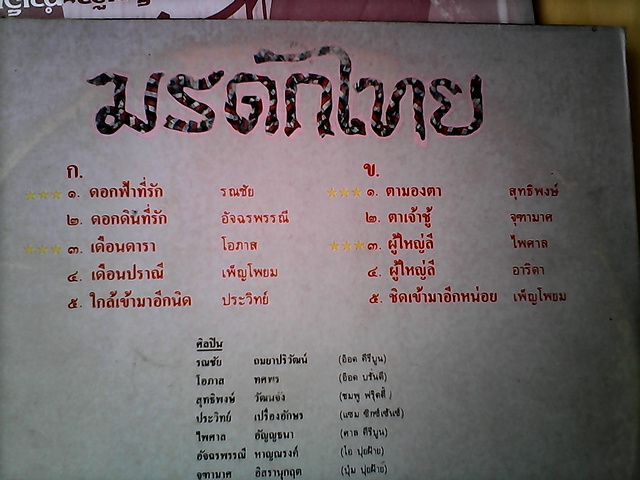 มรดกไทย
ก.
๑. ดอกฟ้าที่รัก รณชัย
๒. ดอกดินที่รัก อัจฉรพรรณี
๓. เดือนดารา โอภาส
๔. เดือนปราณี เพ็ญโพยม
๕. ใกล้เข้ามาอีกนิด ประวิทย์
ข.
๑. ตามองตา สุทธิพงษ์
๒. ตาเจ้าชู้ จุฑามาศ
๓. ผู้ใหญ่ลี ไพศาล
๔. ผู้ใหญ่ลี อาริดา
๕. ชิดเข้ามาอีกหน่อย เพ็ญโพยม
ศิลปิน
รณชัย ถมยาปริวัฒน์ (อ๊อด คีรีบูน)
โอภาส ทศพร (อ๊อด บรั่นดี)
สุทธิพงษ์ วัฒนจัง (ชมพู ฟรุ๊ตตี้)
ประวิทย์ เปรื่องอักษร (แซม ซิกซ์เซ้นซ์)
ไพศาล อัญญธนา (ศาล คีรีบูน)
อัจฉรพรรณี หาญณรงค์ (โอ ปุยฝ้าย)
จุฑามาศ อิสรานุกฤต (ปุ้ม ปุยฝ้าย)